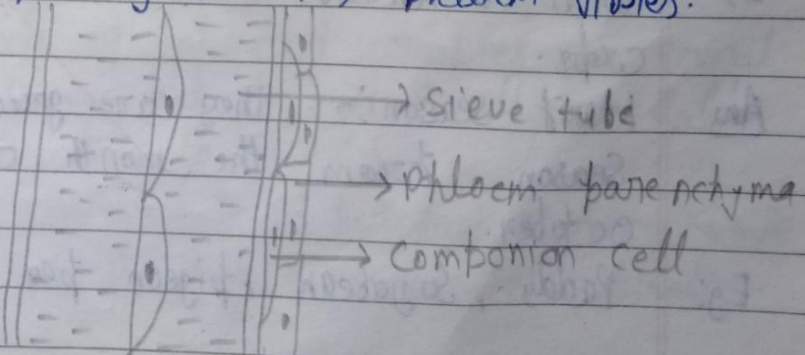 phloem
Sieve tube
Phloem parenchyma
Componion cell